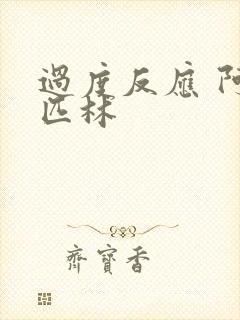 過度反應 阿
匹林
齊寶香